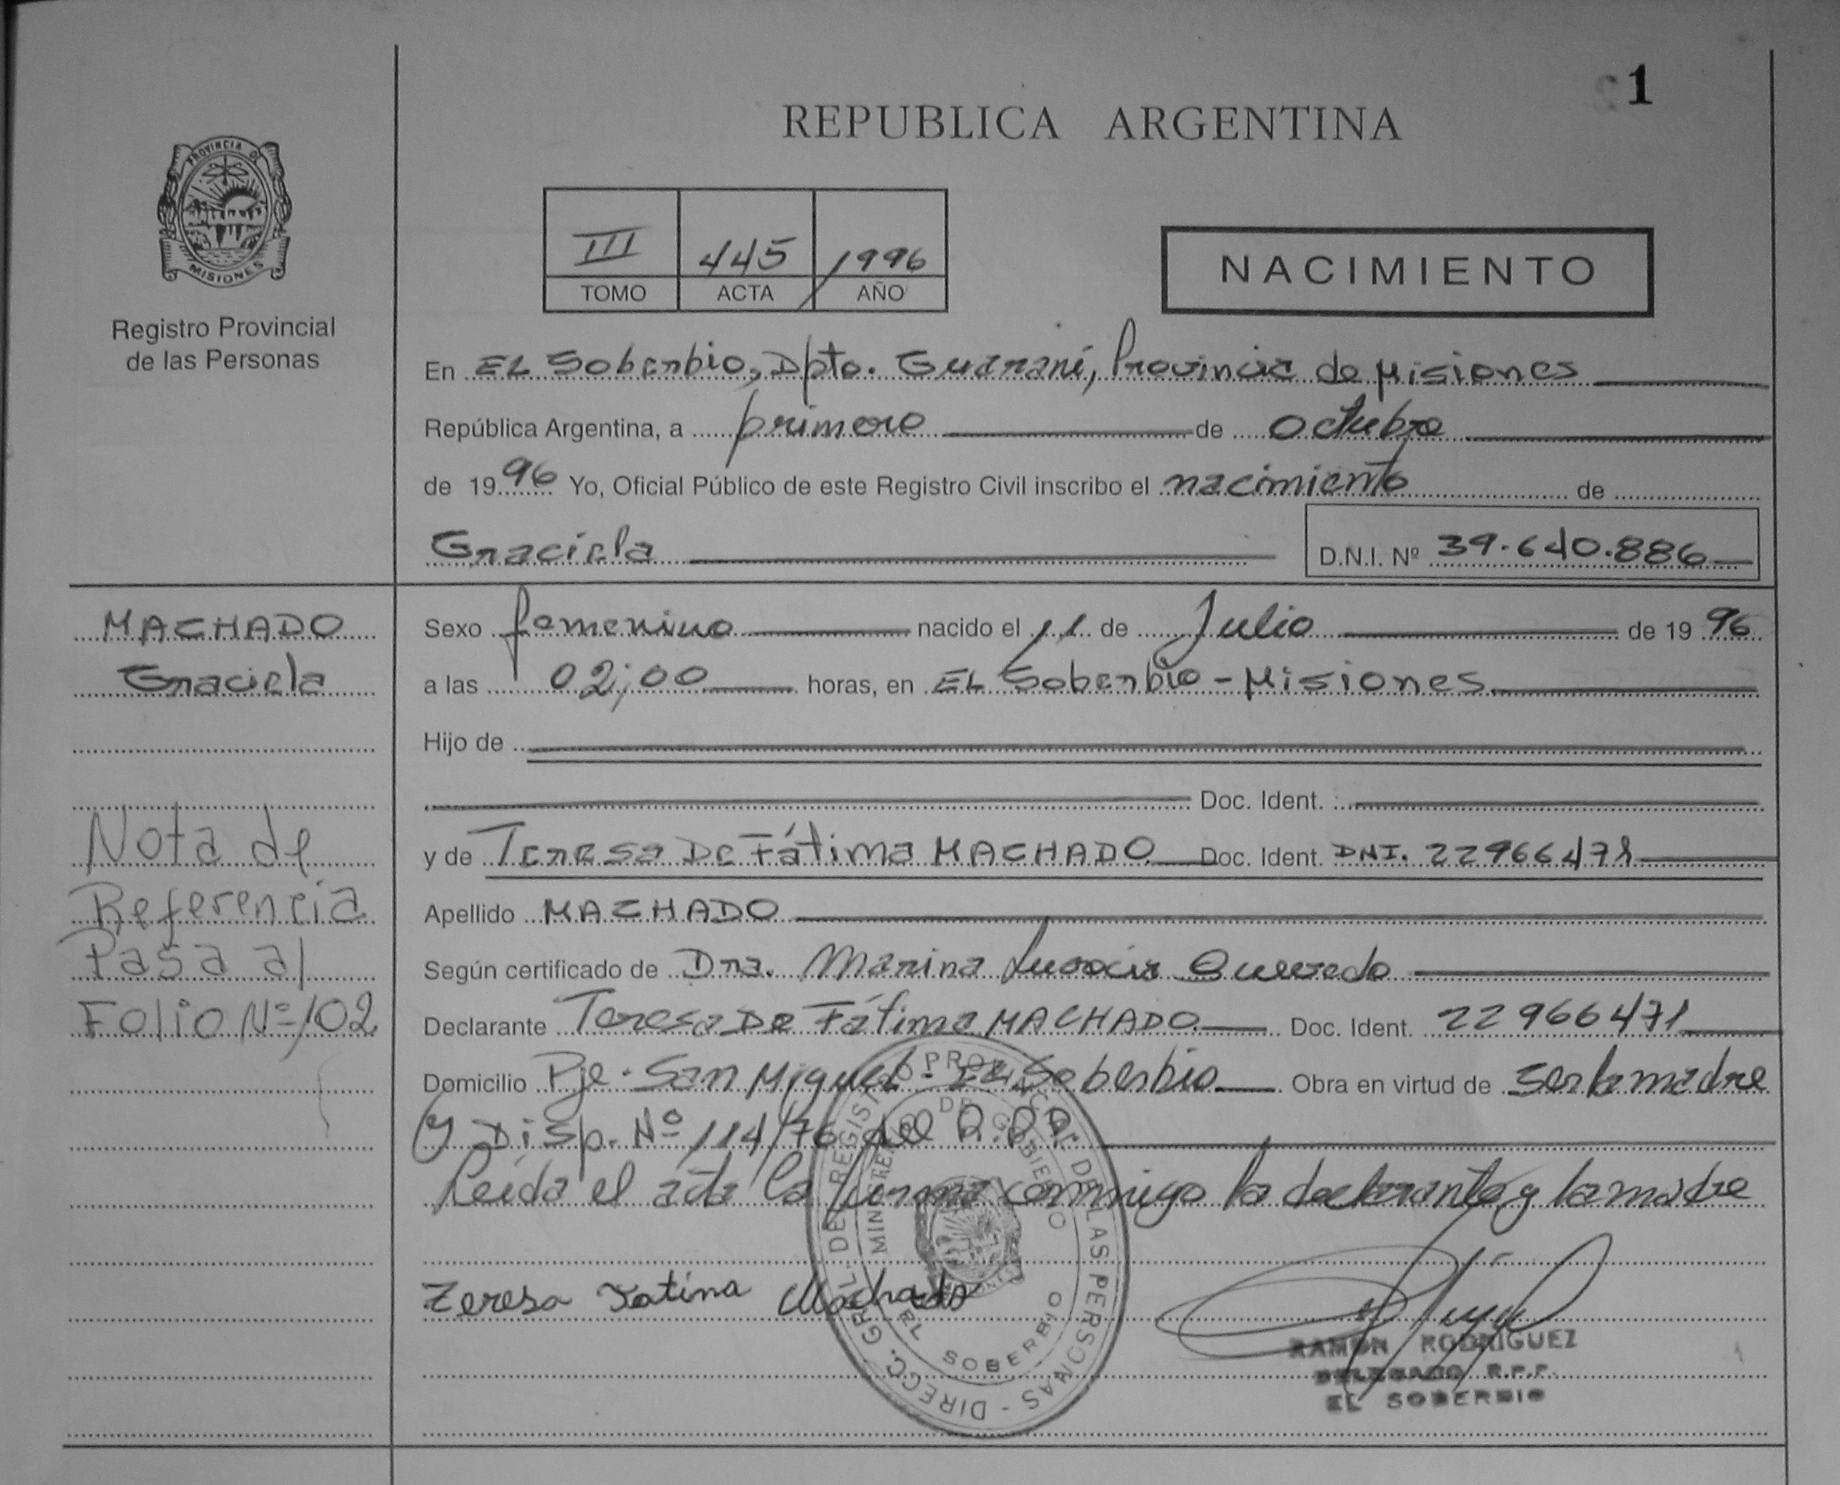 1
REPUBLICA ARGENTINA
PROVINCIA DE
MISIONES
Registro Provincial
de las Personas
III 445 1996
TOMO ACTA AÑO
NACIMIENTO
En EL Soberbio, Dpto. Guaraní, Provincia de Misiones
República Argentina, a primero de octubre
de 1996 Yo, Oficial Público de este Registro Civil inscribo el nacimiento de
Graciela D.N.I. Nº 39.640.886
MACHADO
Graciela
Sexo femenino nacido el 11 de Julio de 1996
a las 02;00 horas, en EL Soberbio - Misiones
Hijo de
Doc. Ident.
y de Teresa De Fátima MACHADO Doc. Ident. DNI. 22966471
Apellido MACHADO
Según certificado de Dra. Marina Quevedo
Declarante Teresa De Fátima MACHADO Doc. Ident. 22966471
Domicilio Pje. San Miguel - EL Soberbio Obra en virtud de ser la madre
y Disp. Nº 114/76 del
Leída el acta la firma conmigo la declarante y la madre
Nota de
Referencia
Pasa al
Folio Nº 102
Teresa Fatima Machado
DIRECC. GRAL. DEL REGISTRO PROVINCIAL DE LAS PERSONAS
MINISTERIO DE GOBIERNO
EL SOBERBIO
RAMON RODRIGUEZ
DELEGADO R.P.P.
EL SOBERBIO